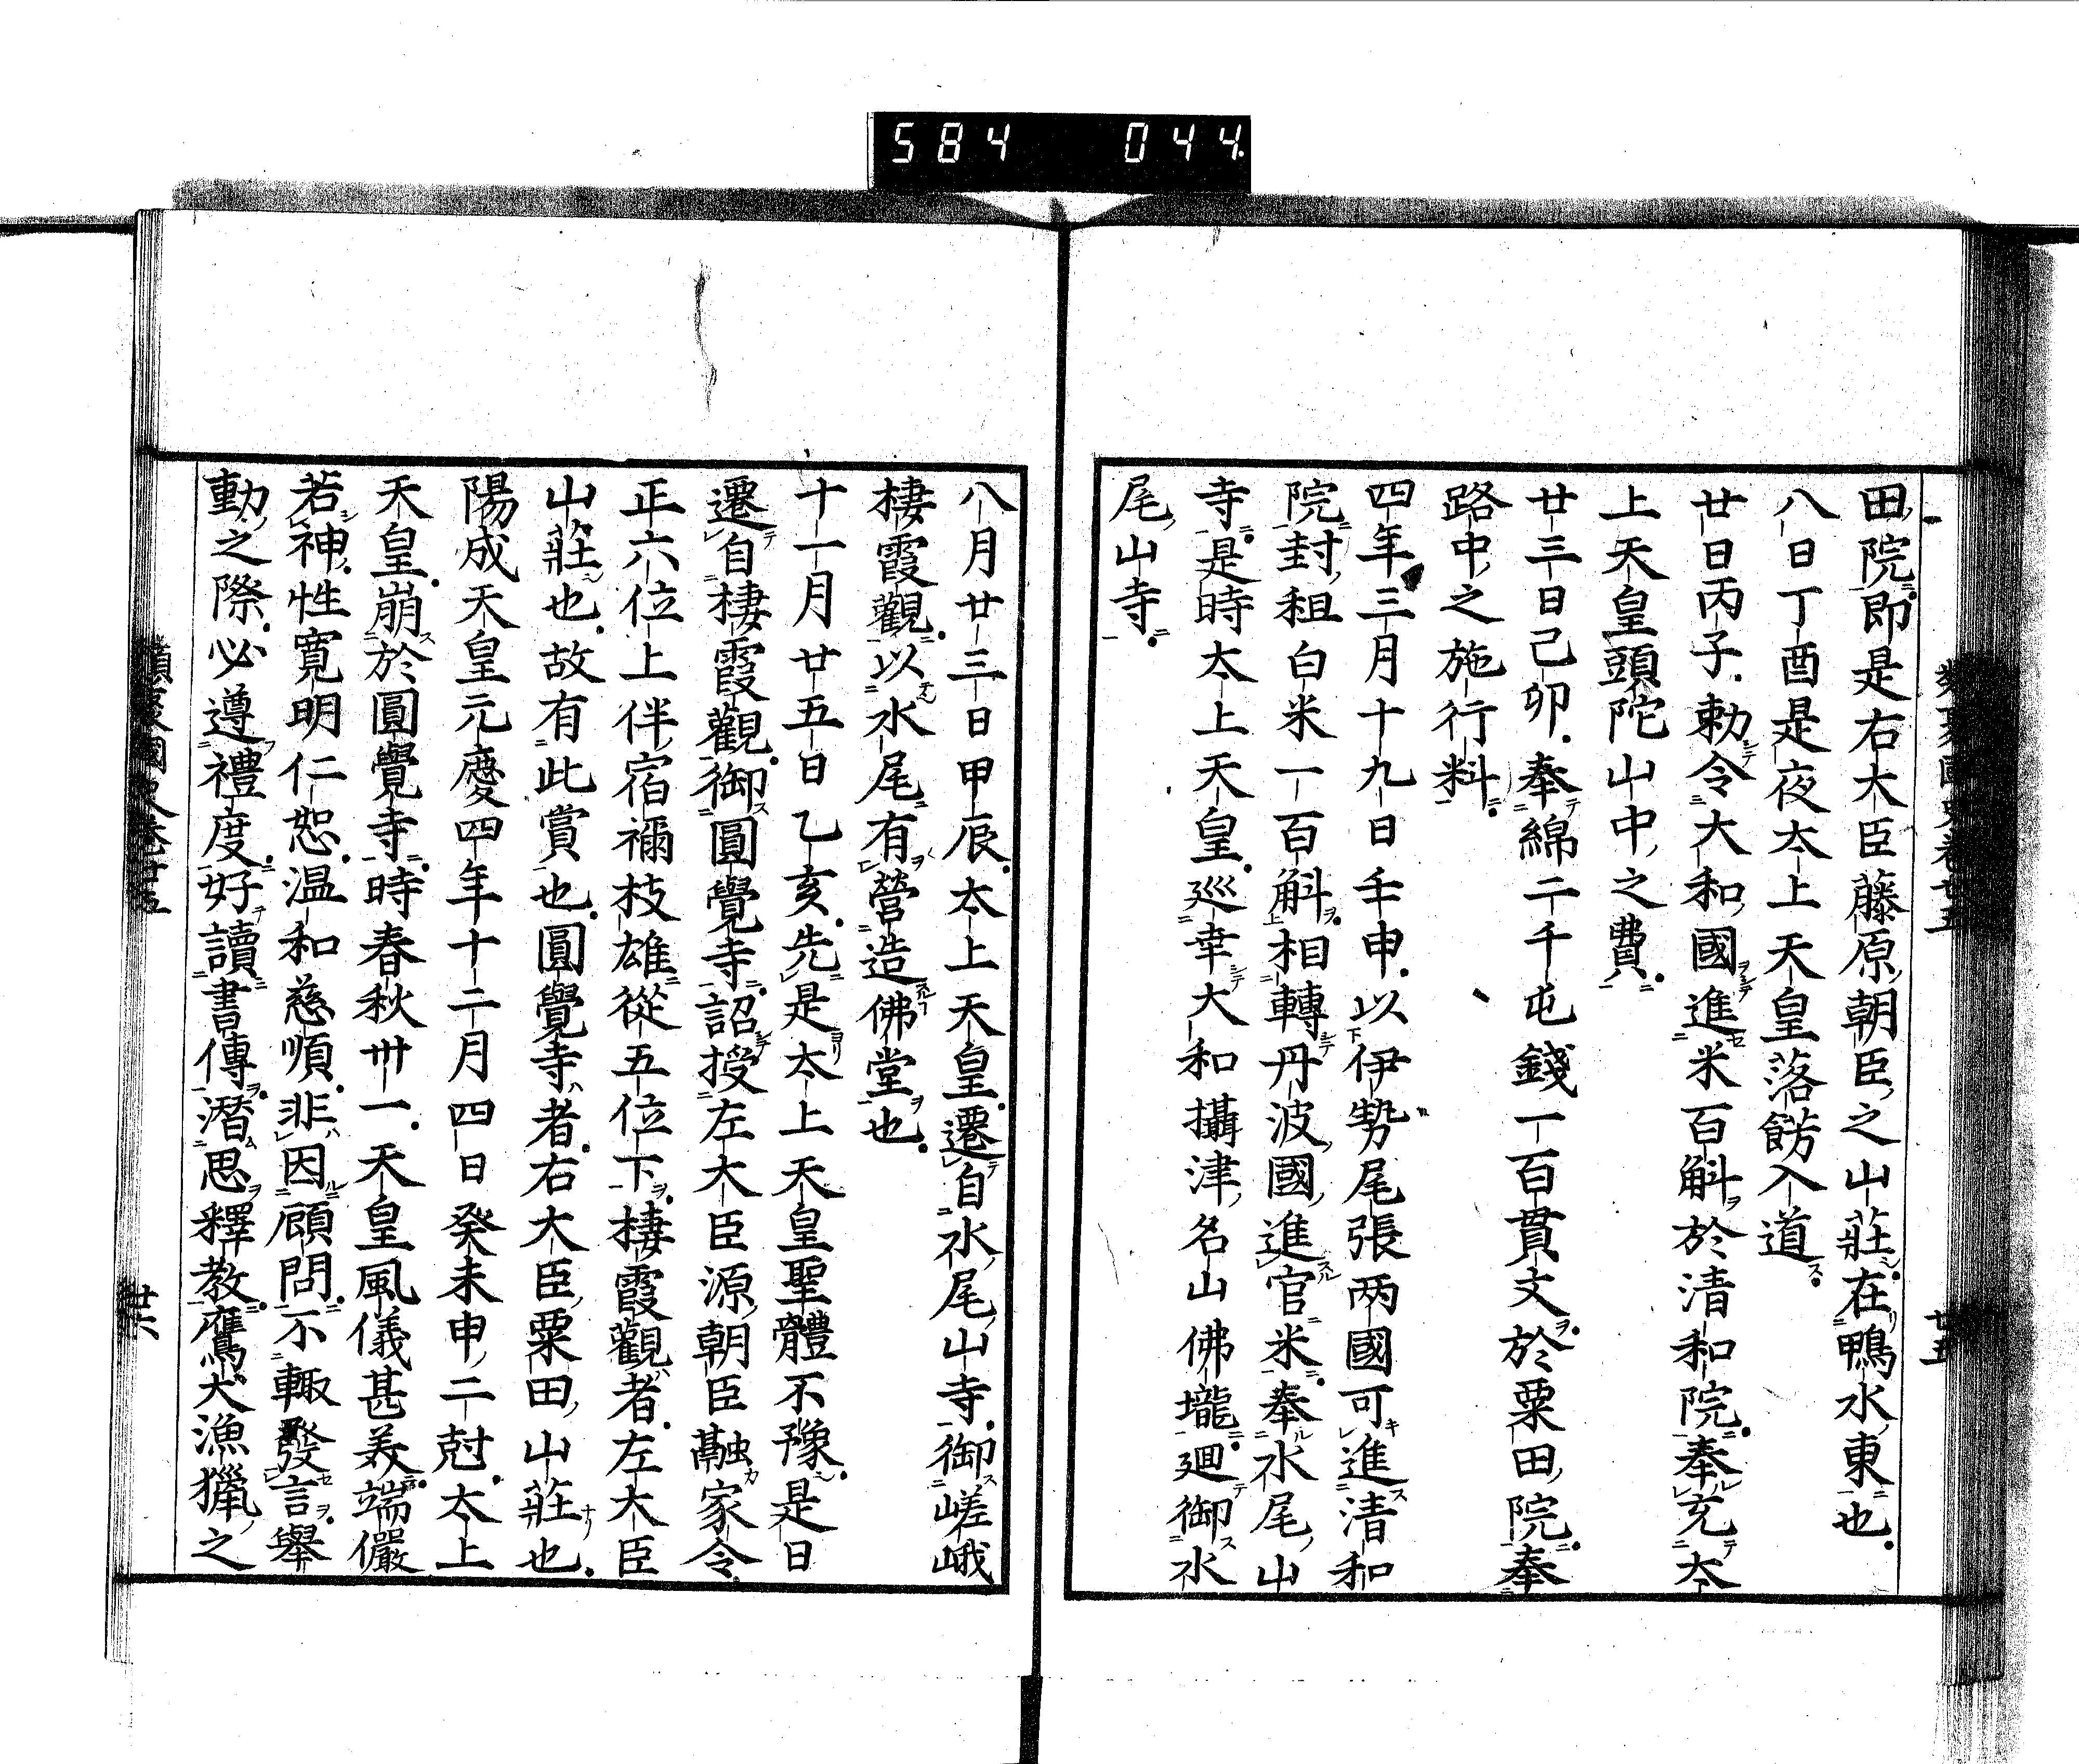 584 044
田院即是右大臣藤原朝臣之山莊在鴨水東也
八日丁酉是夜太上天皇落餝入道
廿日丙子勅令大和國進米百斛於清和院奉充太
上天皇頭陀山中之費
廿三日己卯奉綿二千屯錢一百貫文於粟田院奉
路中之施行料
四年三月十九日壬申以伊勢尾張两國可進清和
院封租白米一百斛相轉丹波國進官米奉水尾山
寺是時太上天皇巡幸大和攝津名山佛壠廻御水
尾山寺
八月廿三日甲辰太上天皇遷自水尾山寺御嵯峨
棲霞觀以水尾有營造佛堂也
十一月廿五日乙亥先是太上天皇聖體不豫是日
遷自棲霞觀御圓覺寺詔授左大臣源朝臣融家令
正六位上伴宿禰枝雄從五位下棲霞觀者左大臣
山莊也故有此賞也圓覺寺者右大臣粟田山莊也
陽成天皇元慶四年十二月四日癸未申二尅太上
天皇崩於圓覺寺時春秋卅一天皇風儀甚美端儼
若神性寬明仁恕温和慈順非因顧問不輙發言舉
動之際必遵禮度好讀書傳潛思釋教鷹犬漁獵之
類聚國史卷廿五
廿六